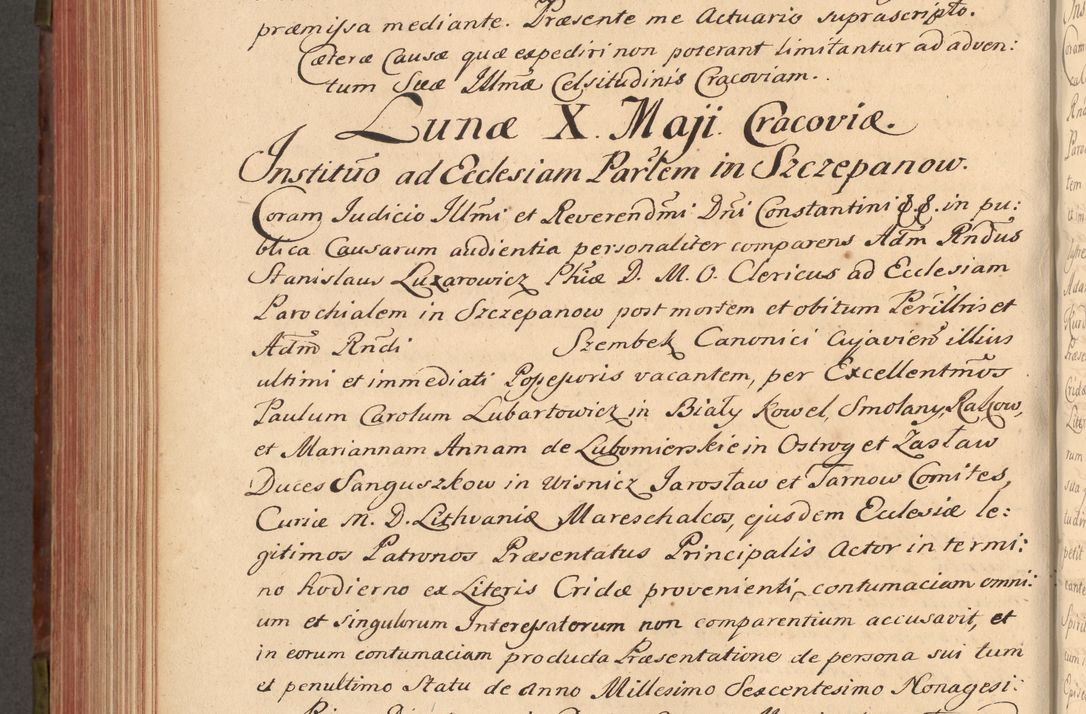 præmissa mediante. Præsente me Actuario suprascripto.
Cæteræ Causæ quæ expediri non poterant limitantur ad adven:
tum Suæ Illmæ Celsitudinis Cracoviam.
Lunæ X. Maji. Cracoviæ.
Institutio ad Ecclesiam Parlem in Szczepanow.
Coram Judicio Illmi et Reverendmi Dni Constantini in pu:
blica Causarum audientia personaliter comparens Adm Rndus
Stanislaus Luzarowicz Phiæ D. M. O. Clericus ad Ecclesiam
Parochialem in Szczepanow post mortem et obitum Perillris et
Adm Rndi Szembek Canonici Cujavien illius
ultimi et immediati Possessoris vacantem, per Excellentmos
Paulum Carolum Lubartowicz in Biały Kowel, Smolany, Rakow,
et Mariannam Annam de Lubomierskie in Ostrog et Zasław
Duces Sanguszkow in Wisnicz Jarosław et Tarnow Comites,
Curiæ M. D. Lithvaniæ Mareschalcos, ejusdem Ecclesiæ le:
gitimos Patronos Præsentatus Principalis Actor in termi:
no hodierno ex Literis Cridæ provenienti, contumaciam omni:
um et singulorum Interessatorum non comparentium accusavit, et
in eorum contumaciam producta Præsentatione de persona sui tum
et penultimo Statu de Anno Millesimo Sexcentesimo Nonagesi: